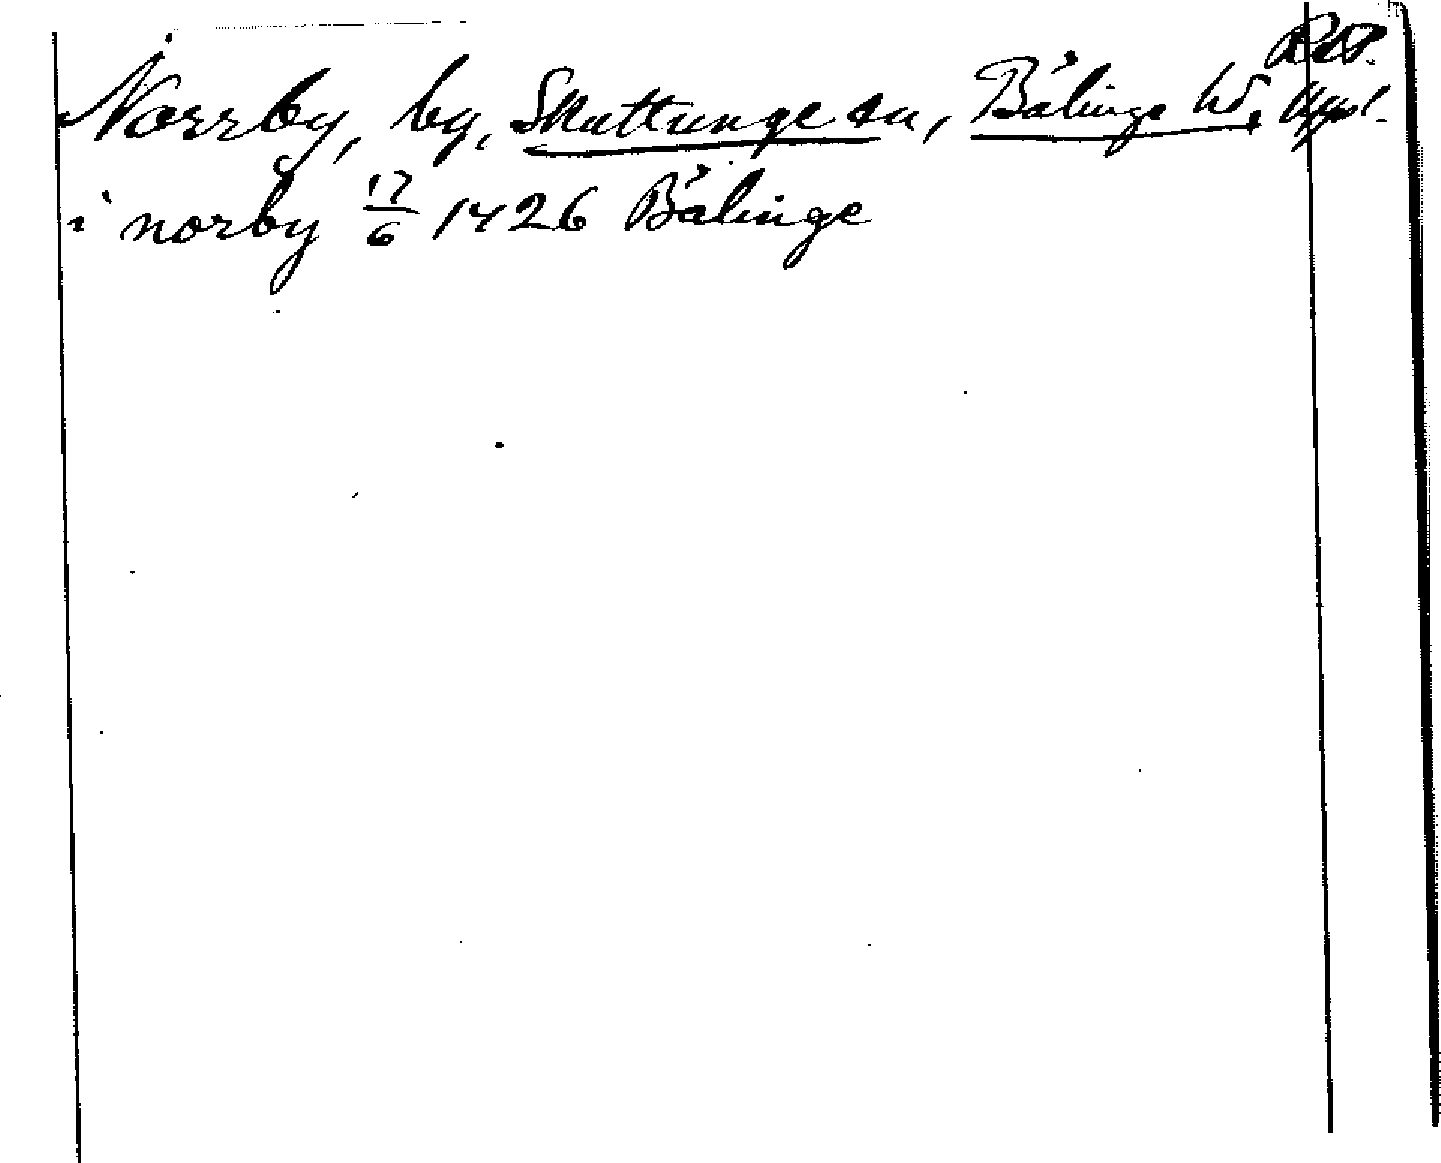 Norrby, by, Skuttunge sn, Bälinge hd, Uppl.
i norby 17/6 1426 Bälinge